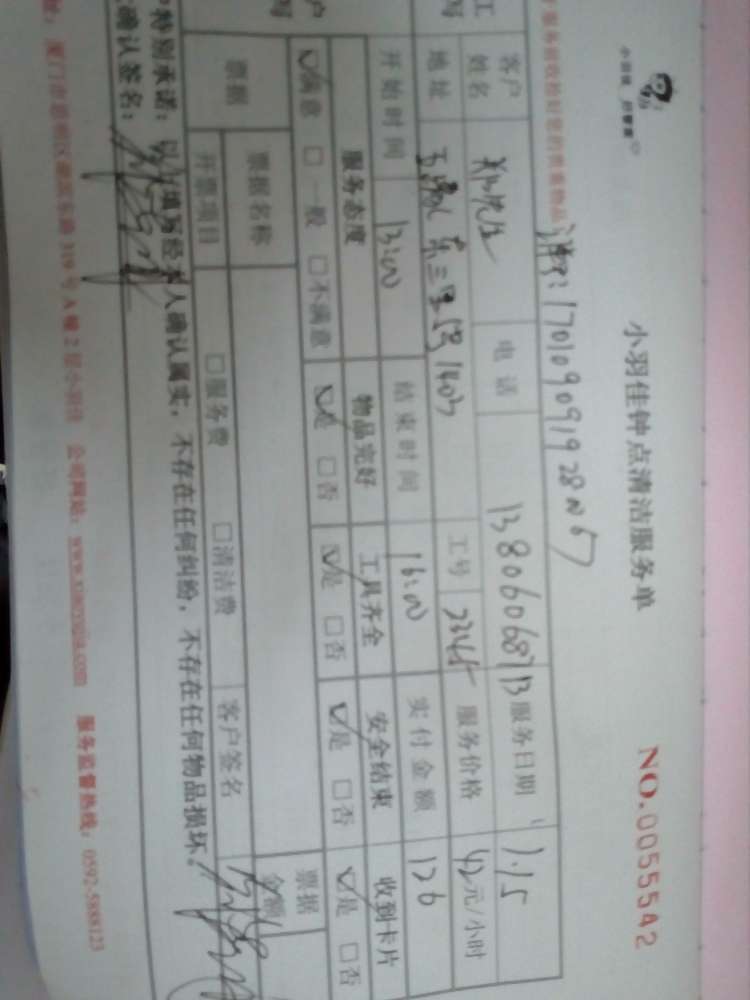 小羽佳钟点清洁服务单
NO.0055542
小羽佳
服务前收拾好您的贵重物品
17010909192
客户姓名
电话 13806068713
服务日期 1.15
地址 东三里 1403
工号 2345
服务价格 42元/小时
开始时间 13:00
结束时间 16:00
实付金额 126
服务态度 物品完好 工具齐全 安全结束 收到卡片
☑满意 □一般 □不满意 ☑是 □否 ☑是 □否 ☑是 □否 ☑是 □否
票据
票据名称
票据金额
开票项目 □服务费 □清洁费 客户签名
特别承诺：以上填写经本人确认属实，不存在任何纠纷，不存在任何物品损坏。
确认签名：
厦门市思明区湖滨东路319号A幢2层小羽佳 公司网站：www.xiaoyujia.com 服务监督热线：0592-5888123